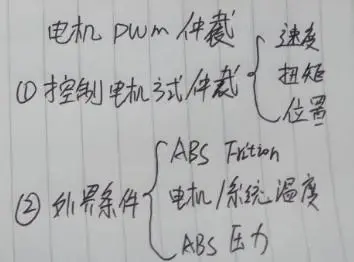 电机 PWM 仲裁
① 控制电机方式仲裁
速度
扭矩
位置
② 外界条件
ABS Frition
电机/系统温度
ABS 压力